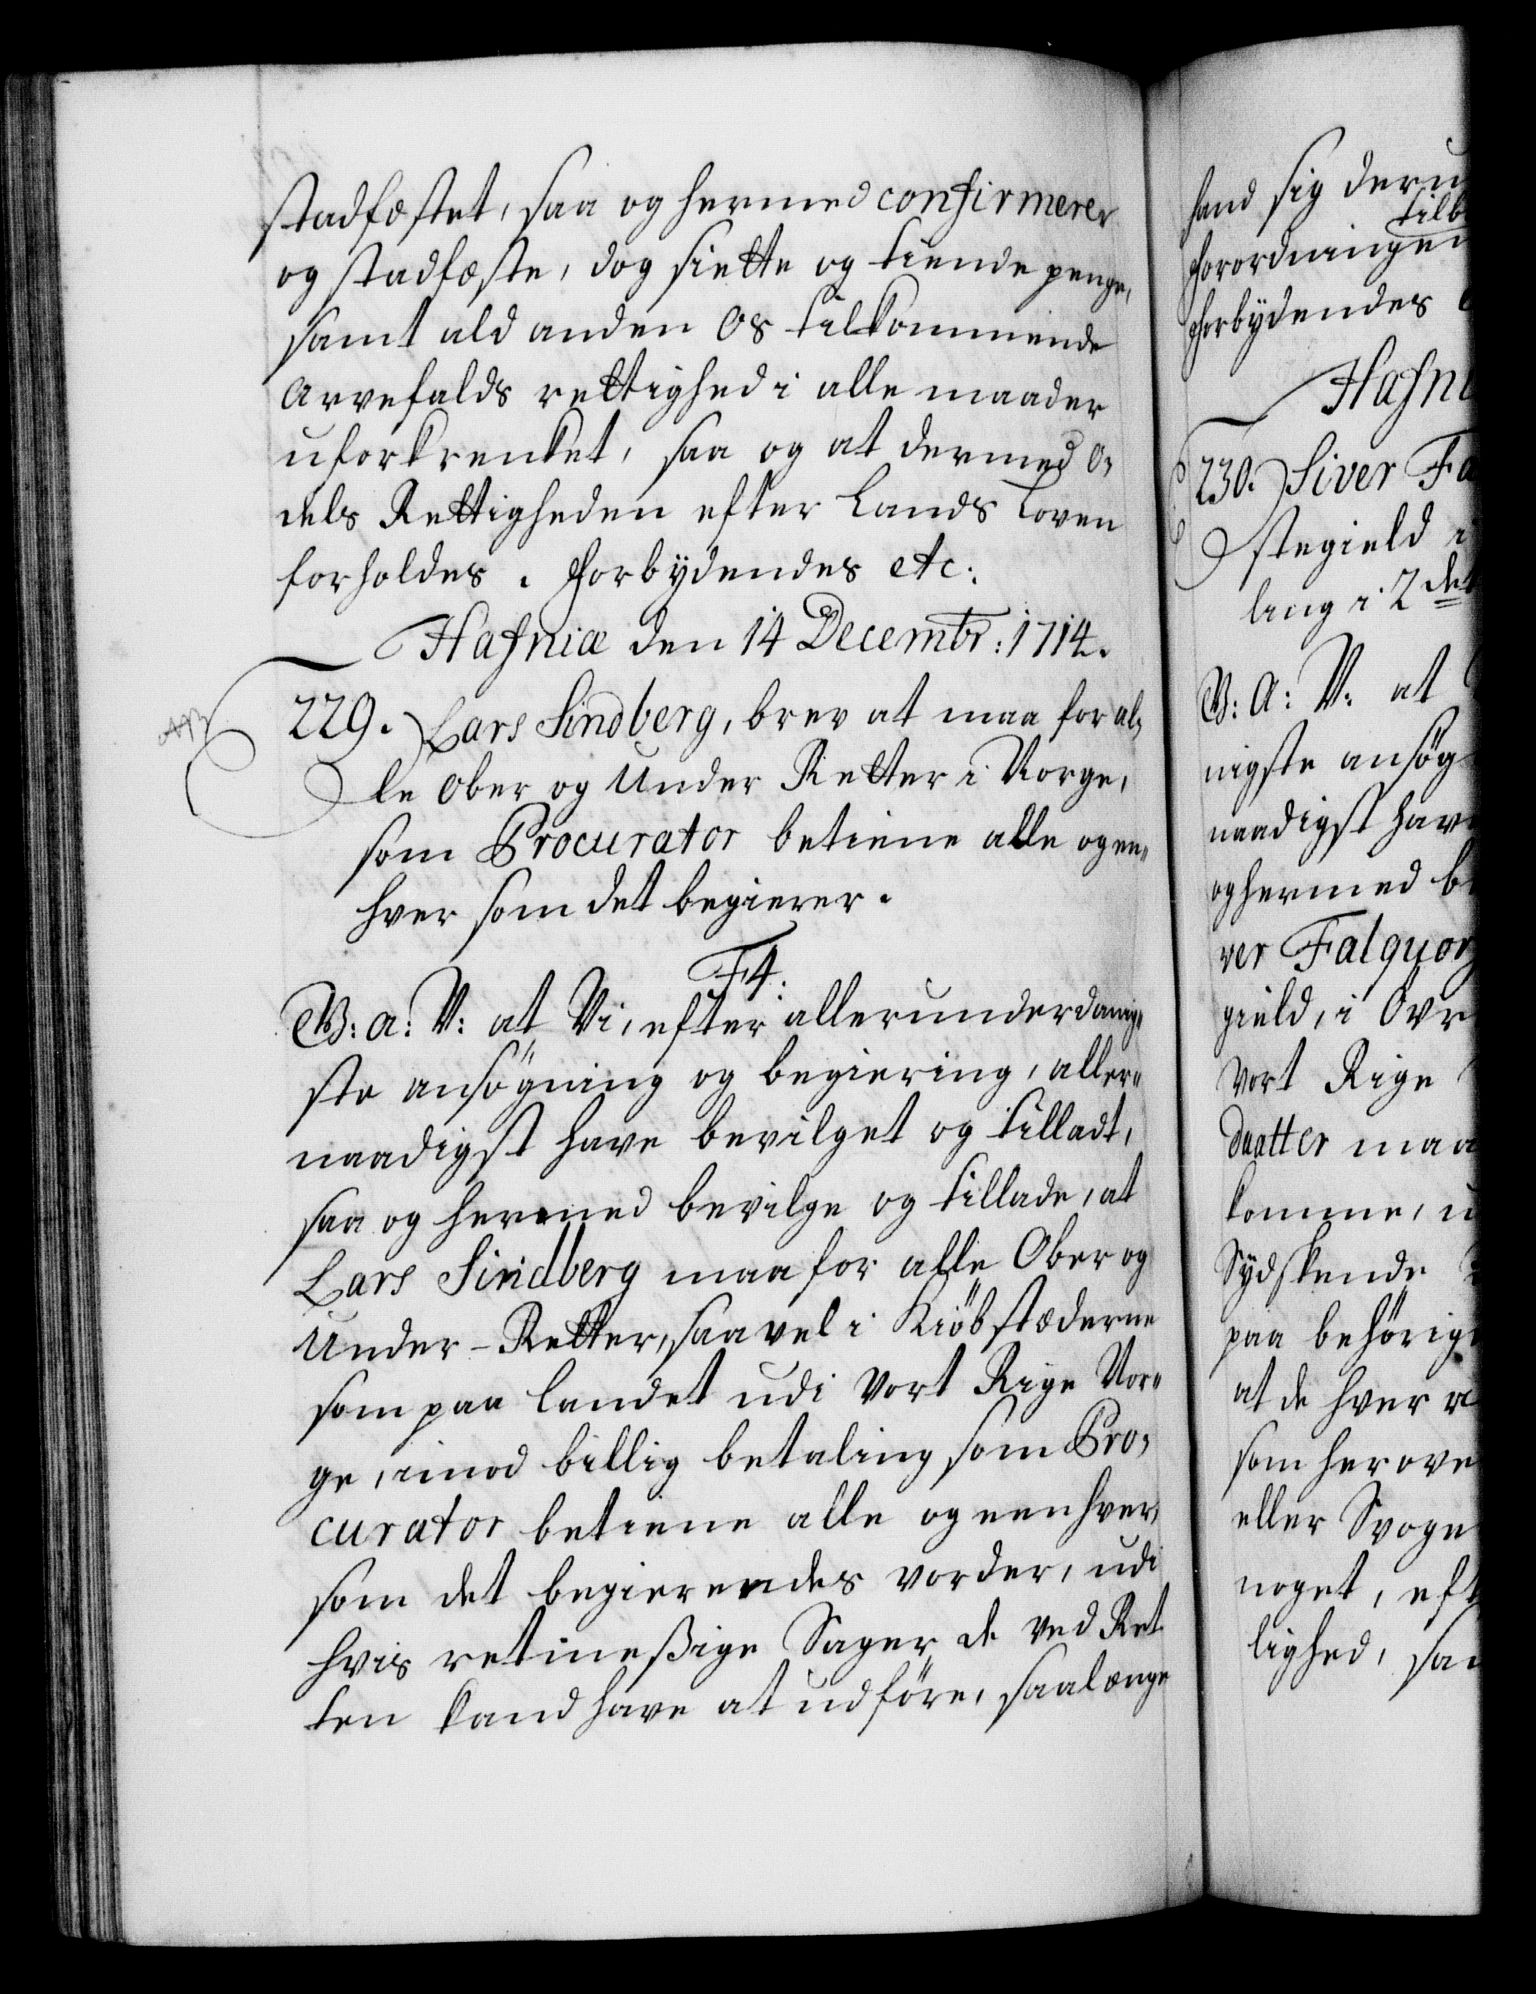 stadfæstet, saa og hermed confirmerer
og stadfæste, dog siette og tiende penge,
samt ald anden Os tilkommende
Arvefalds rettighed i alle maader
uforkrenket, saa og at dermed O,
dels Rettigheden efter Lands Loven
forholdes. Forbÿdendes etc:
Hafniæ den 14 Decembr: 1714.
229. Lars Sindberg, brev at maa for al,
le Ober og Under Retter i Norge,
som Procurator betiene alle og en„
hver som det begierer.
F4.
W: A: V: at Vi, efter allerunderdanig„
ste ansögning og begiering, aller„
naadigst have bevilget og tilladt,
saa og hermed bevilge og tillade, at
Lars Sindberg maa for alle Ober og
Under-Retter, saavel i Kiöbstæderne
som paa Landet udi Vort Rige Nor„
ge, imod billig betaling som Pro,
curator betiene alle og eenhver,
som det begierendes vorder, udi
hvis retmeßige Sager de ved Ret
ten kand have at udföre, saalænge
hand sig deru
tilb
Forordningen
Forbÿdendes
Hafni
230. Siver Fa
stegield i
ling i 2det
W: A: V: at
nigste ansög
naadigst hav
og hermed be
ver Falquor
gield, i Övr
Vort Rige
daatter maa
komme, u
Sÿdskende
paa behörig
at de hver
som herove
eller Svoge
noget, eft
lighed, sa